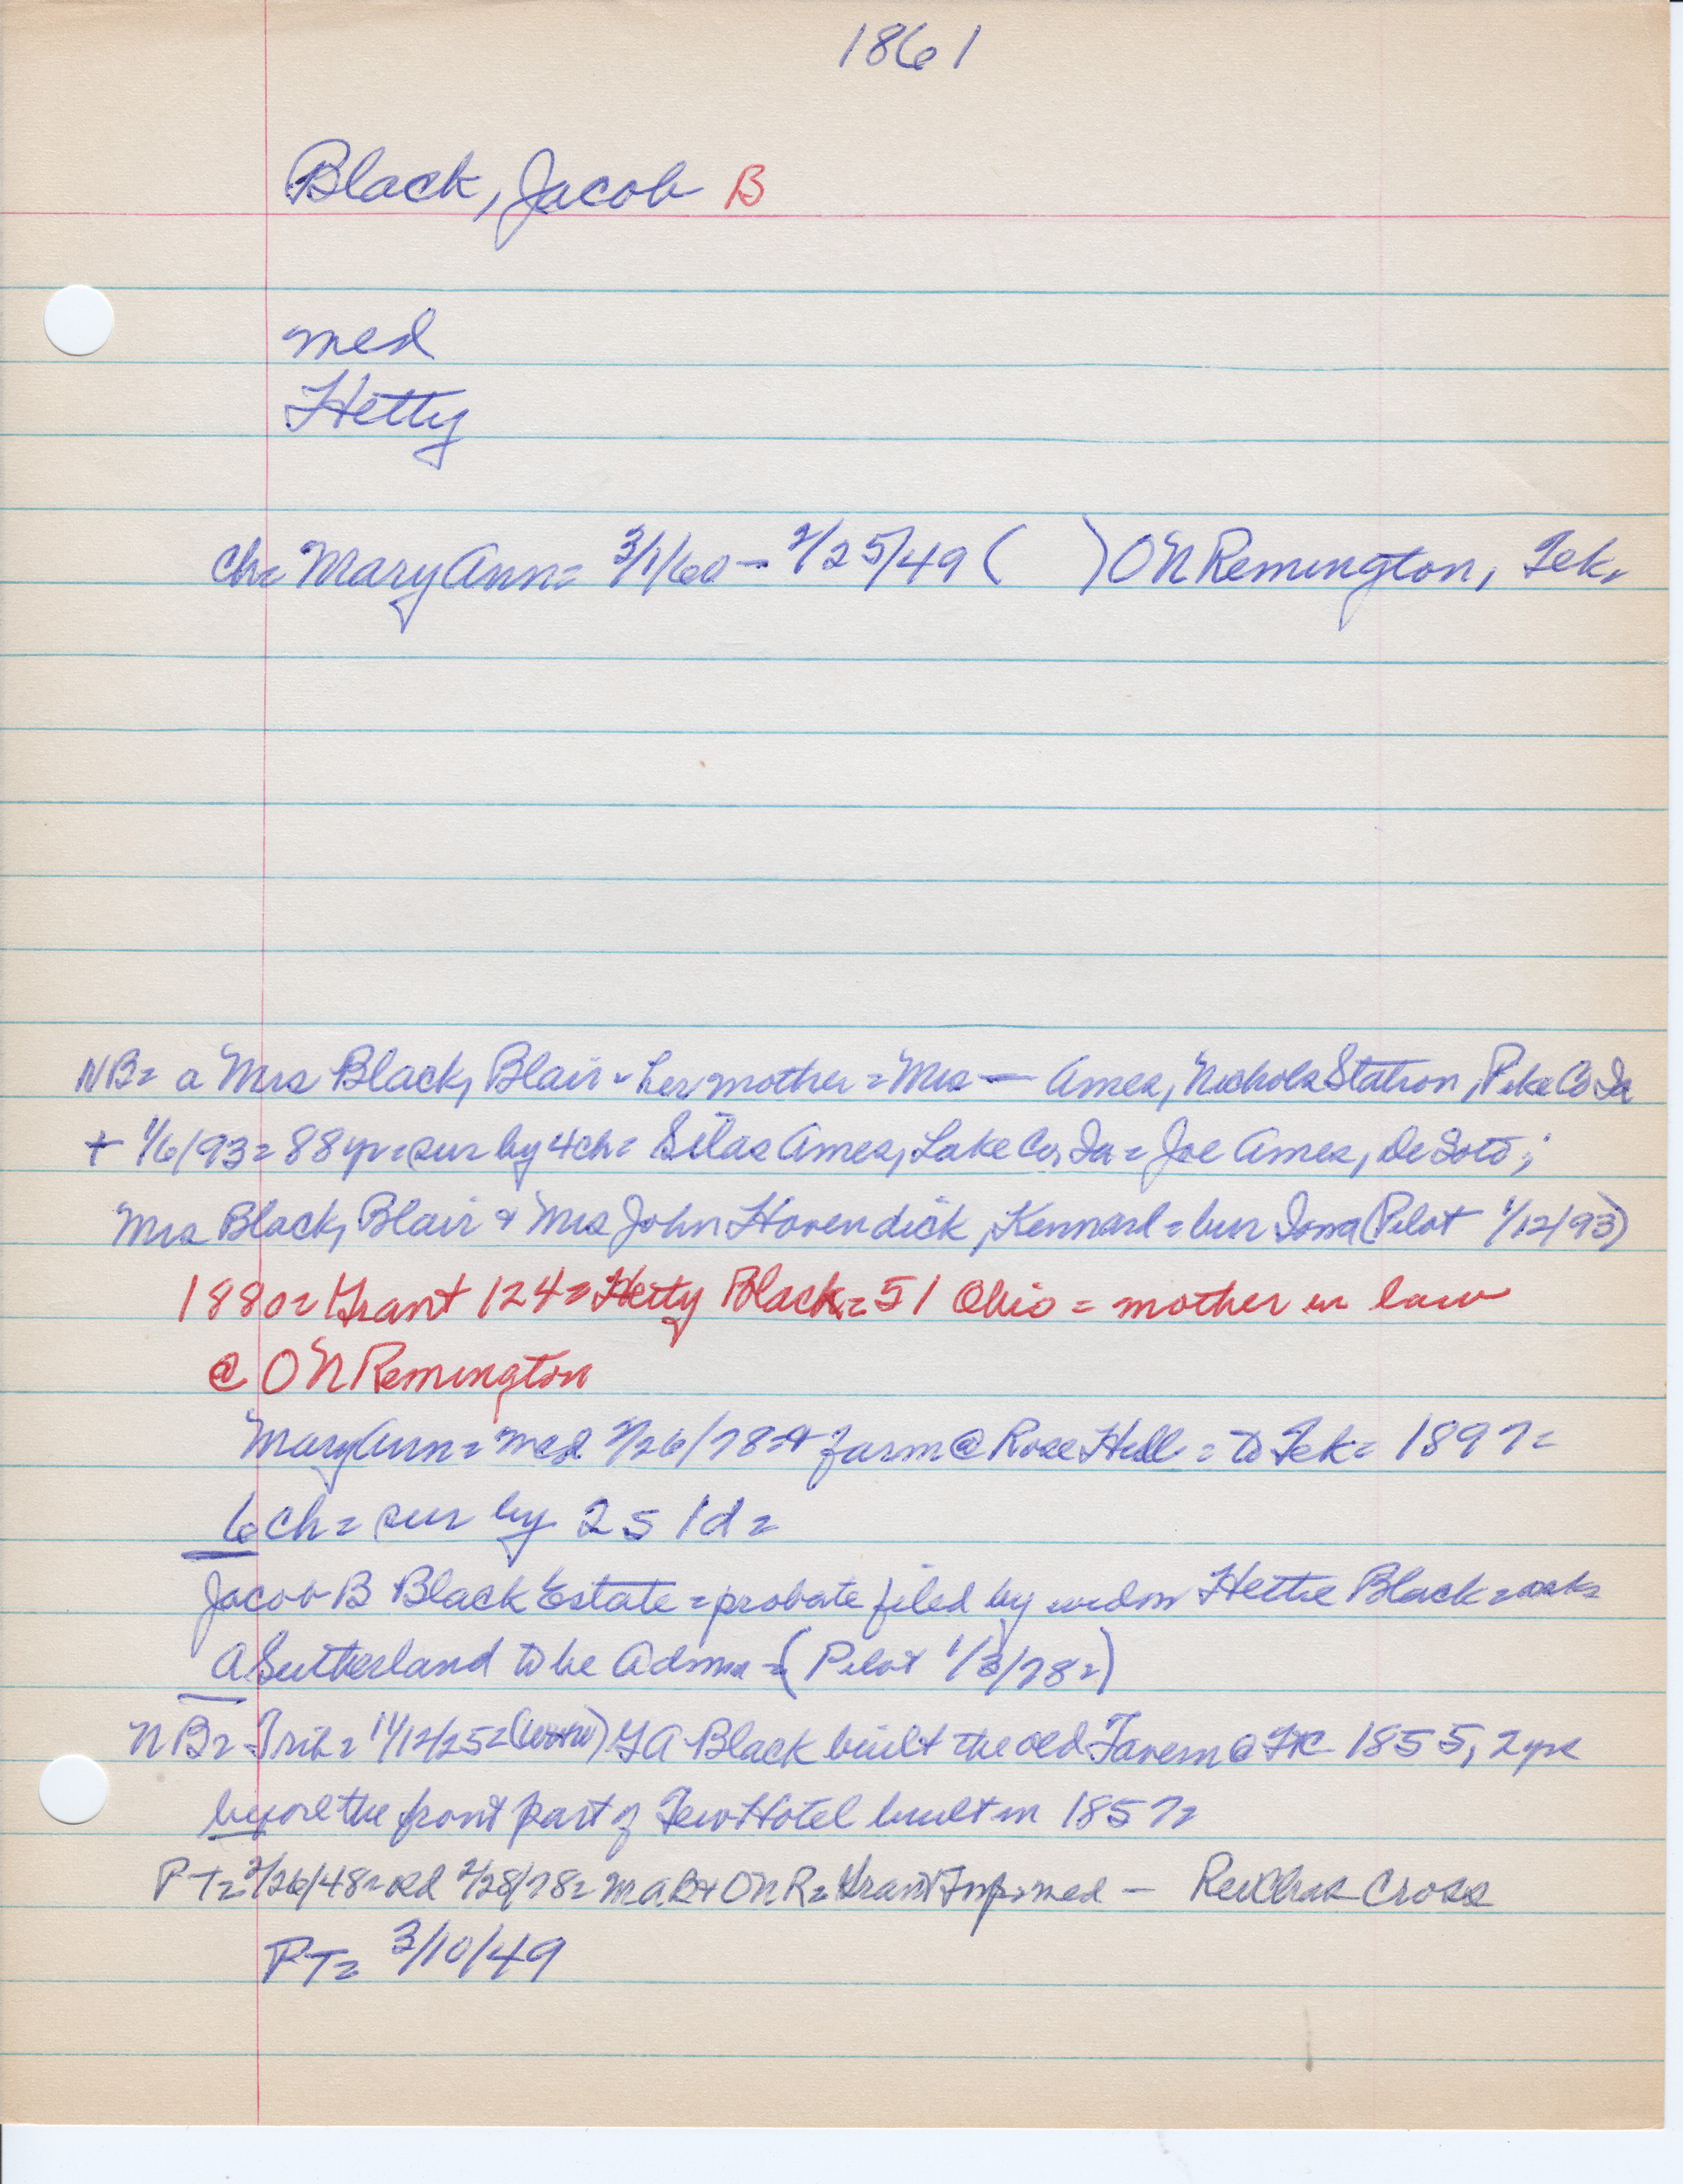 1861
Black, Jacob B
med
Hetty
ch= Mary Ann= 3/1/60 – 2/25/49 ( ) ON Remington, Tek.
NB= a Mrs Black, Blair = her mother = Mrs — Ames, Nichols Station, Pike Co Ia
+ 1/6/93= 88 yr= sur by 4 ch= Silas Ames, Lake Co, Ia = Joe Ames, De Soto;
Mrs Black, Blair & Mrs John Hovendick, Kennard = bur Iowa (Pilot 1/12/93)
1880= Grant 124= Hetty Black= 51 Ohio = mother in law
@ ON Remington
Mary Ann= med 2/26/78= + farm @ Rose Hill = to Tek= 1897=
6 ch= sur by 2 s 1 d=
Jacob B Black Estate = probate filed by widow Hettie Black = asks
A Sutherland to be Admn = (Pilot 1/3/78=)
NB= Trib= 11/12/25= GA Black built the old Tavern @ 1855, 2 yrs
before the front part of Hotel built in 1857=
PT= 2/26/48= old 2/28/78= M A B + O N R= Grant Twp= med — Rev Chas Cross
PT= 3/10/49